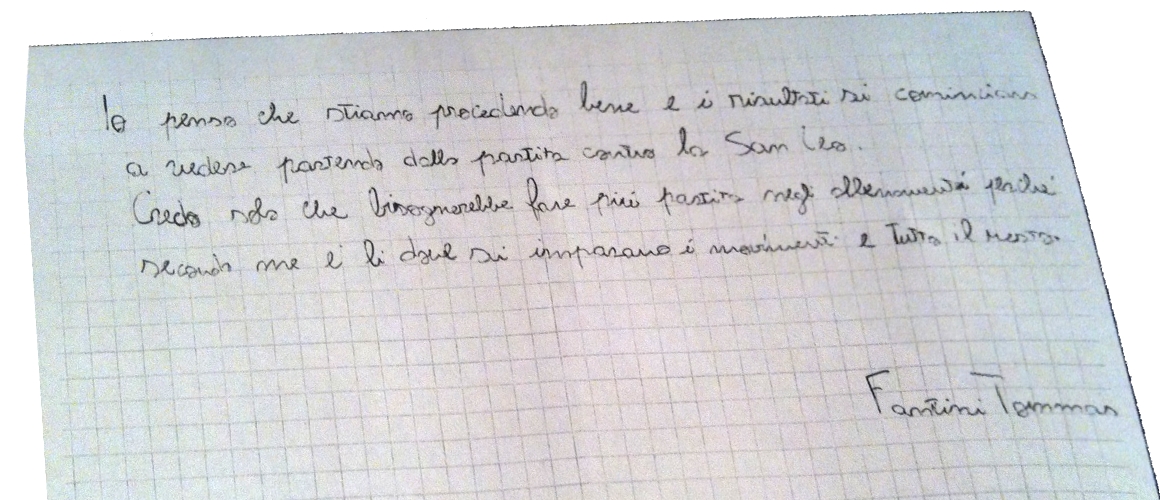 Io penso che stiamo procedendo bene e i risultati si cominciano
a vedere partendo dalla partita contro la San Leo.
Credo solo che bisognerebbe fare più partita negli allenamenti perché
secondo me è li dove si imparano i movimenti e tutto il resto.
Fantini Tommas